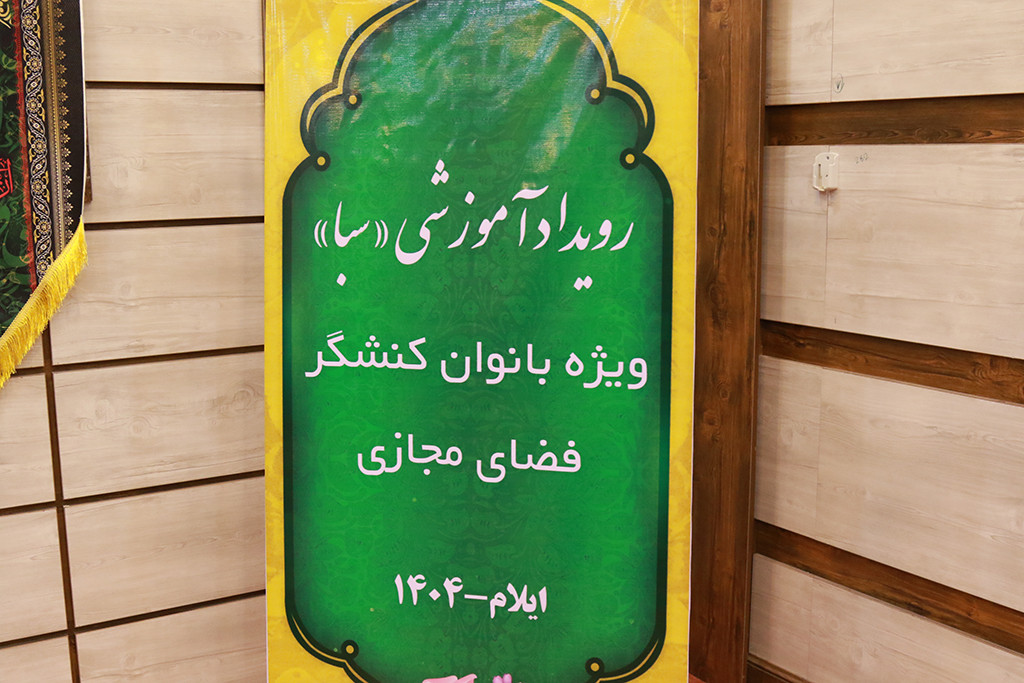 رویداد آموزشی «سبا»
ویژه بانوان کنشگر
فضای مجازی
ایلام-۱۴۰۴